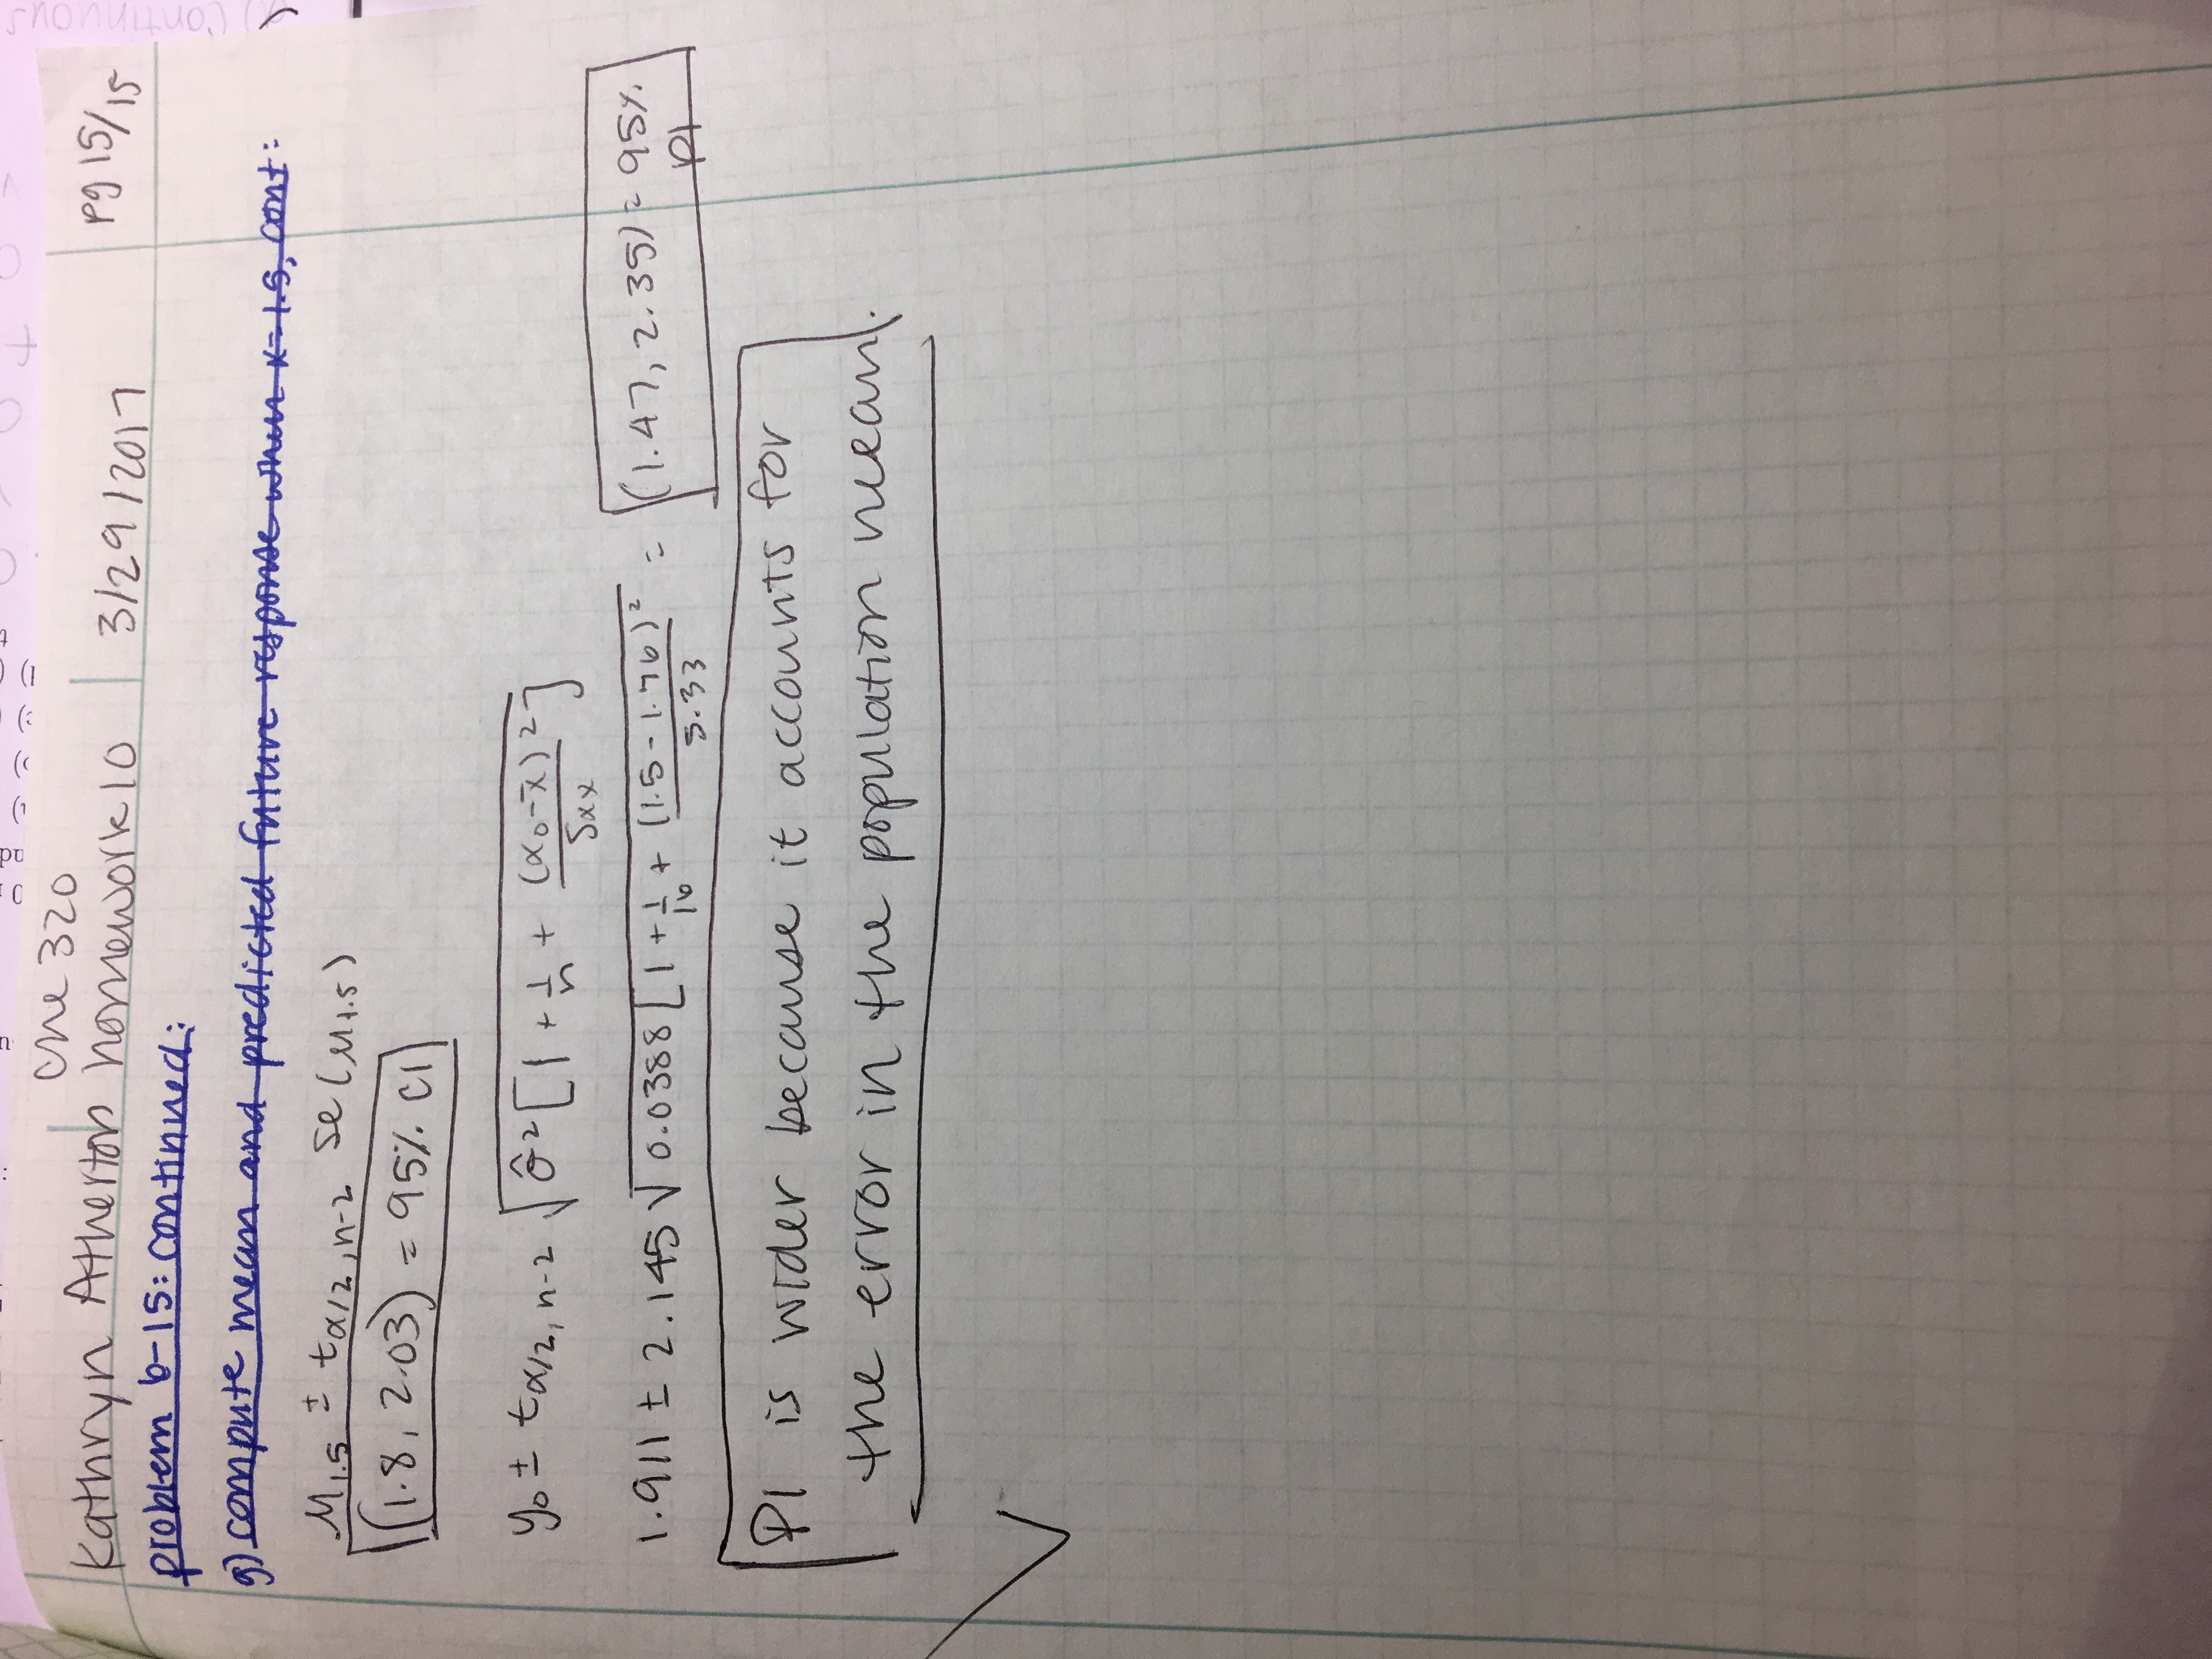 che 320
Kathryn Atherton homework 10 3/29/2017 pg 15/15
problem 6-15: continued:
g) compute mean and predicted future response when x=1.5, cont:
μ1.5 ± tα/2, n-2 se(μ1.5)
(1.8, 2.03) = 95% CI
y₀ ± tα/2, n-2 √σ̂²[1 + 1/n + (x₀-x̄)²/Sxx]
1.911 ± 2.145 √0.0388[1 + 1/16 + (1.5-1.76)²/5.33 = (1.47, 2.35) = 95% PI
PI is wider because it accounts for
the error in the population mean.